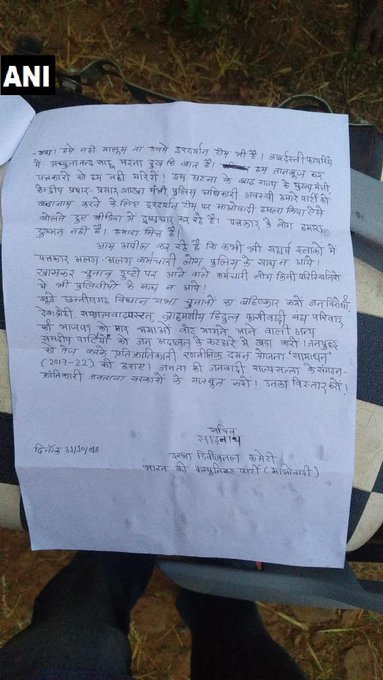 ANI
गया। हमे नही मालूम था उनमे दूरदर्शन टीम भी है। जबर्दस्ती फायरिंग
मे अच्युतानन्द साहू मरना दुख कि बात है। हम जानबूज कर
पत्रकारो को हम नही मारेंगे। उस घटना के बाद राज्य के मुख्य मंत्री,
केन्द्रीय प्रचार-प्रसार शाखा मंत्री, पुलिस अधिकारी अवस्थी हमारे पार्टी को
बदनाम करने के लिए दूरदर्शन टीम पर माओवादी हमला किया ऐसे
बोलते हुए मीडिया में दुष्प्रचार कर रहे है। पत्रकार के लोग हमारा
दुश्मन नही है। हमारा मित्र है।
आम अपील कर रहे है कि कभी भी संघर्ष इलाको मे
पत्रकार अलग अलग कर्मचारी लोग पुलिस के साथ न आंये।
खासकर चुनाव ड्युटी पर आने वाले कर्मचारी लोग किसी परिस्थिति
मे भी पुलिसो के साथ न आंये।
झूठे छत्तीसगढ विधान सभा चुनावो का बहिष्कार करो जनविरोधी
देशद्रोही साम्राज्यवादपरस्त ब्राहमणीय हिंदुत्व परिवार
की भाजपा को मार भगाओ वोट मांगते आने वाली अन्य
संसदीय पार्टियों को जन अदालत के कटघरे में खडा करो। जनयुद्ध
को तेज करके प्रतिक्रांतिकारी रणनीतिक दमन योजना 'समाधान'
(2017-22) को हराए। जनता की जनवादी राज्यसत्ता के संगठन-
क्रांतिकारी जनताना सरकारों के मजबूत करो। उनका विस्तार करो।
सचिव
साईनाथ
दिनाँक 31/10/018
दरभा डिवीजनल कमेटी
भारत की कम्युनिस्ट पार्टी (माओवादी)